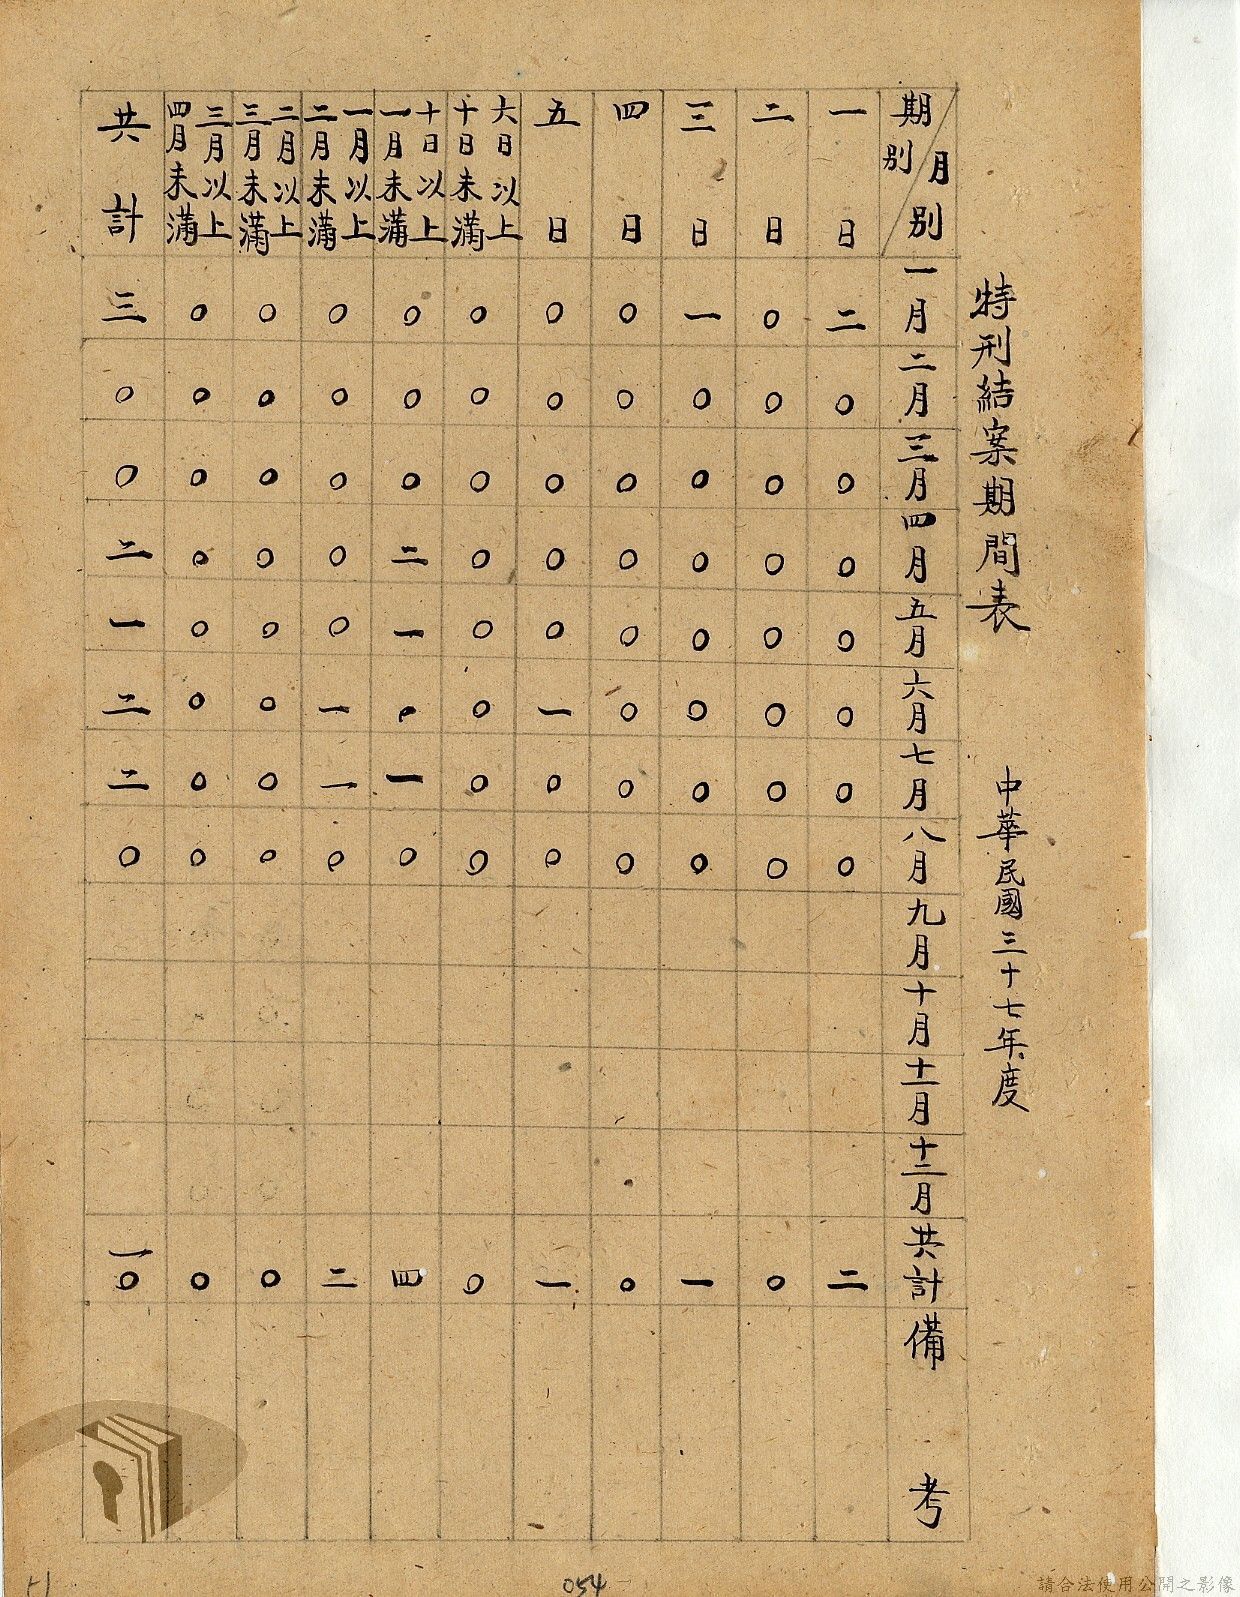 特刑結案期間表 中華民國三十七年度
月別 期別 一月 二月 三月 四月 五月 六月 七月 八月 九月 十月 十一月 十二月 共計 備考
一日 二 〇 〇 〇 〇 〇 〇 〇 二
二日 〇 〇 〇 〇 〇 〇 〇 〇 〇
三日 一 〇 〇 〇 〇 〇 〇 〇 一
四日 〇 〇 〇 〇 〇 〇 〇 〇 〇
五日 〇 〇 〇 〇 〇 一 〇 〇 一
六日以上十日未滿 〇 〇 〇 〇 〇 〇 〇 〇 〇
十日以上一月未滿 〇 〇 〇 二 一 〇 一 〇 四
一月以上二月未滿 〇 〇 〇 〇 〇 一 一 〇 二
二月以上三月未滿 〇 〇 〇 〇 〇 〇 〇 〇 〇
三月以上四月未滿 〇 〇 〇 〇 〇 〇 〇 〇 〇
共計 三 〇 〇 二 一 二 二 〇 一〇
054
請合法使用公開之影像